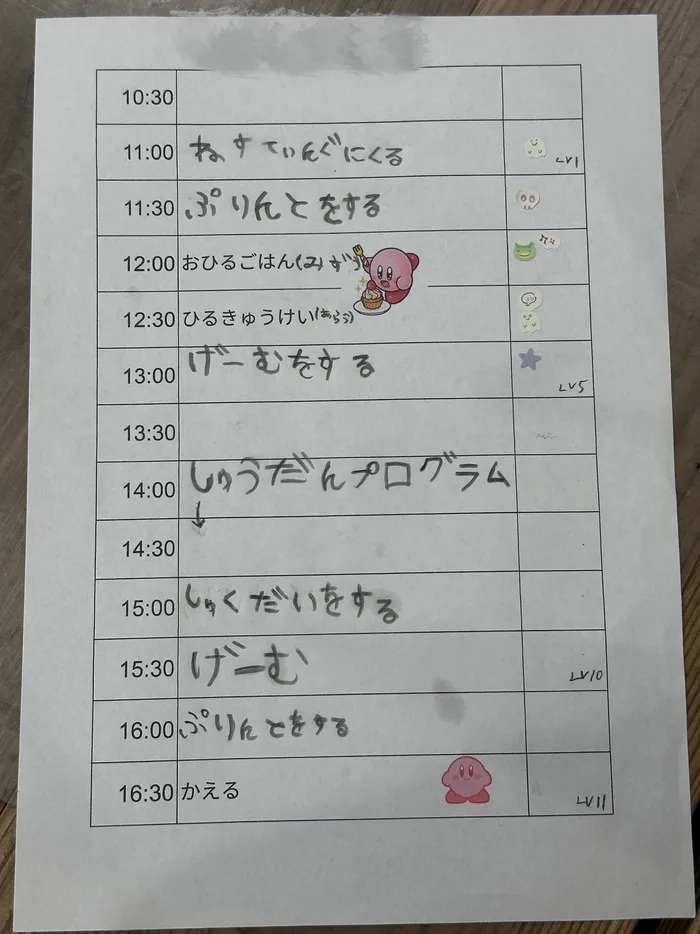 10:30
11:00 ねすてぃんぐにくる LV1
11:30 ぷりんとをする
12:00 おひるごはん
12:30 ひるきゅうけい
13:00 げーむをする LV5
13:30
14:00 しゅうだんプログラム
↓
14:30
15:00 しゅくだいをする
15:30 げーむ LV10
16:00 ぷりんとをする
16:30 かえる LV11